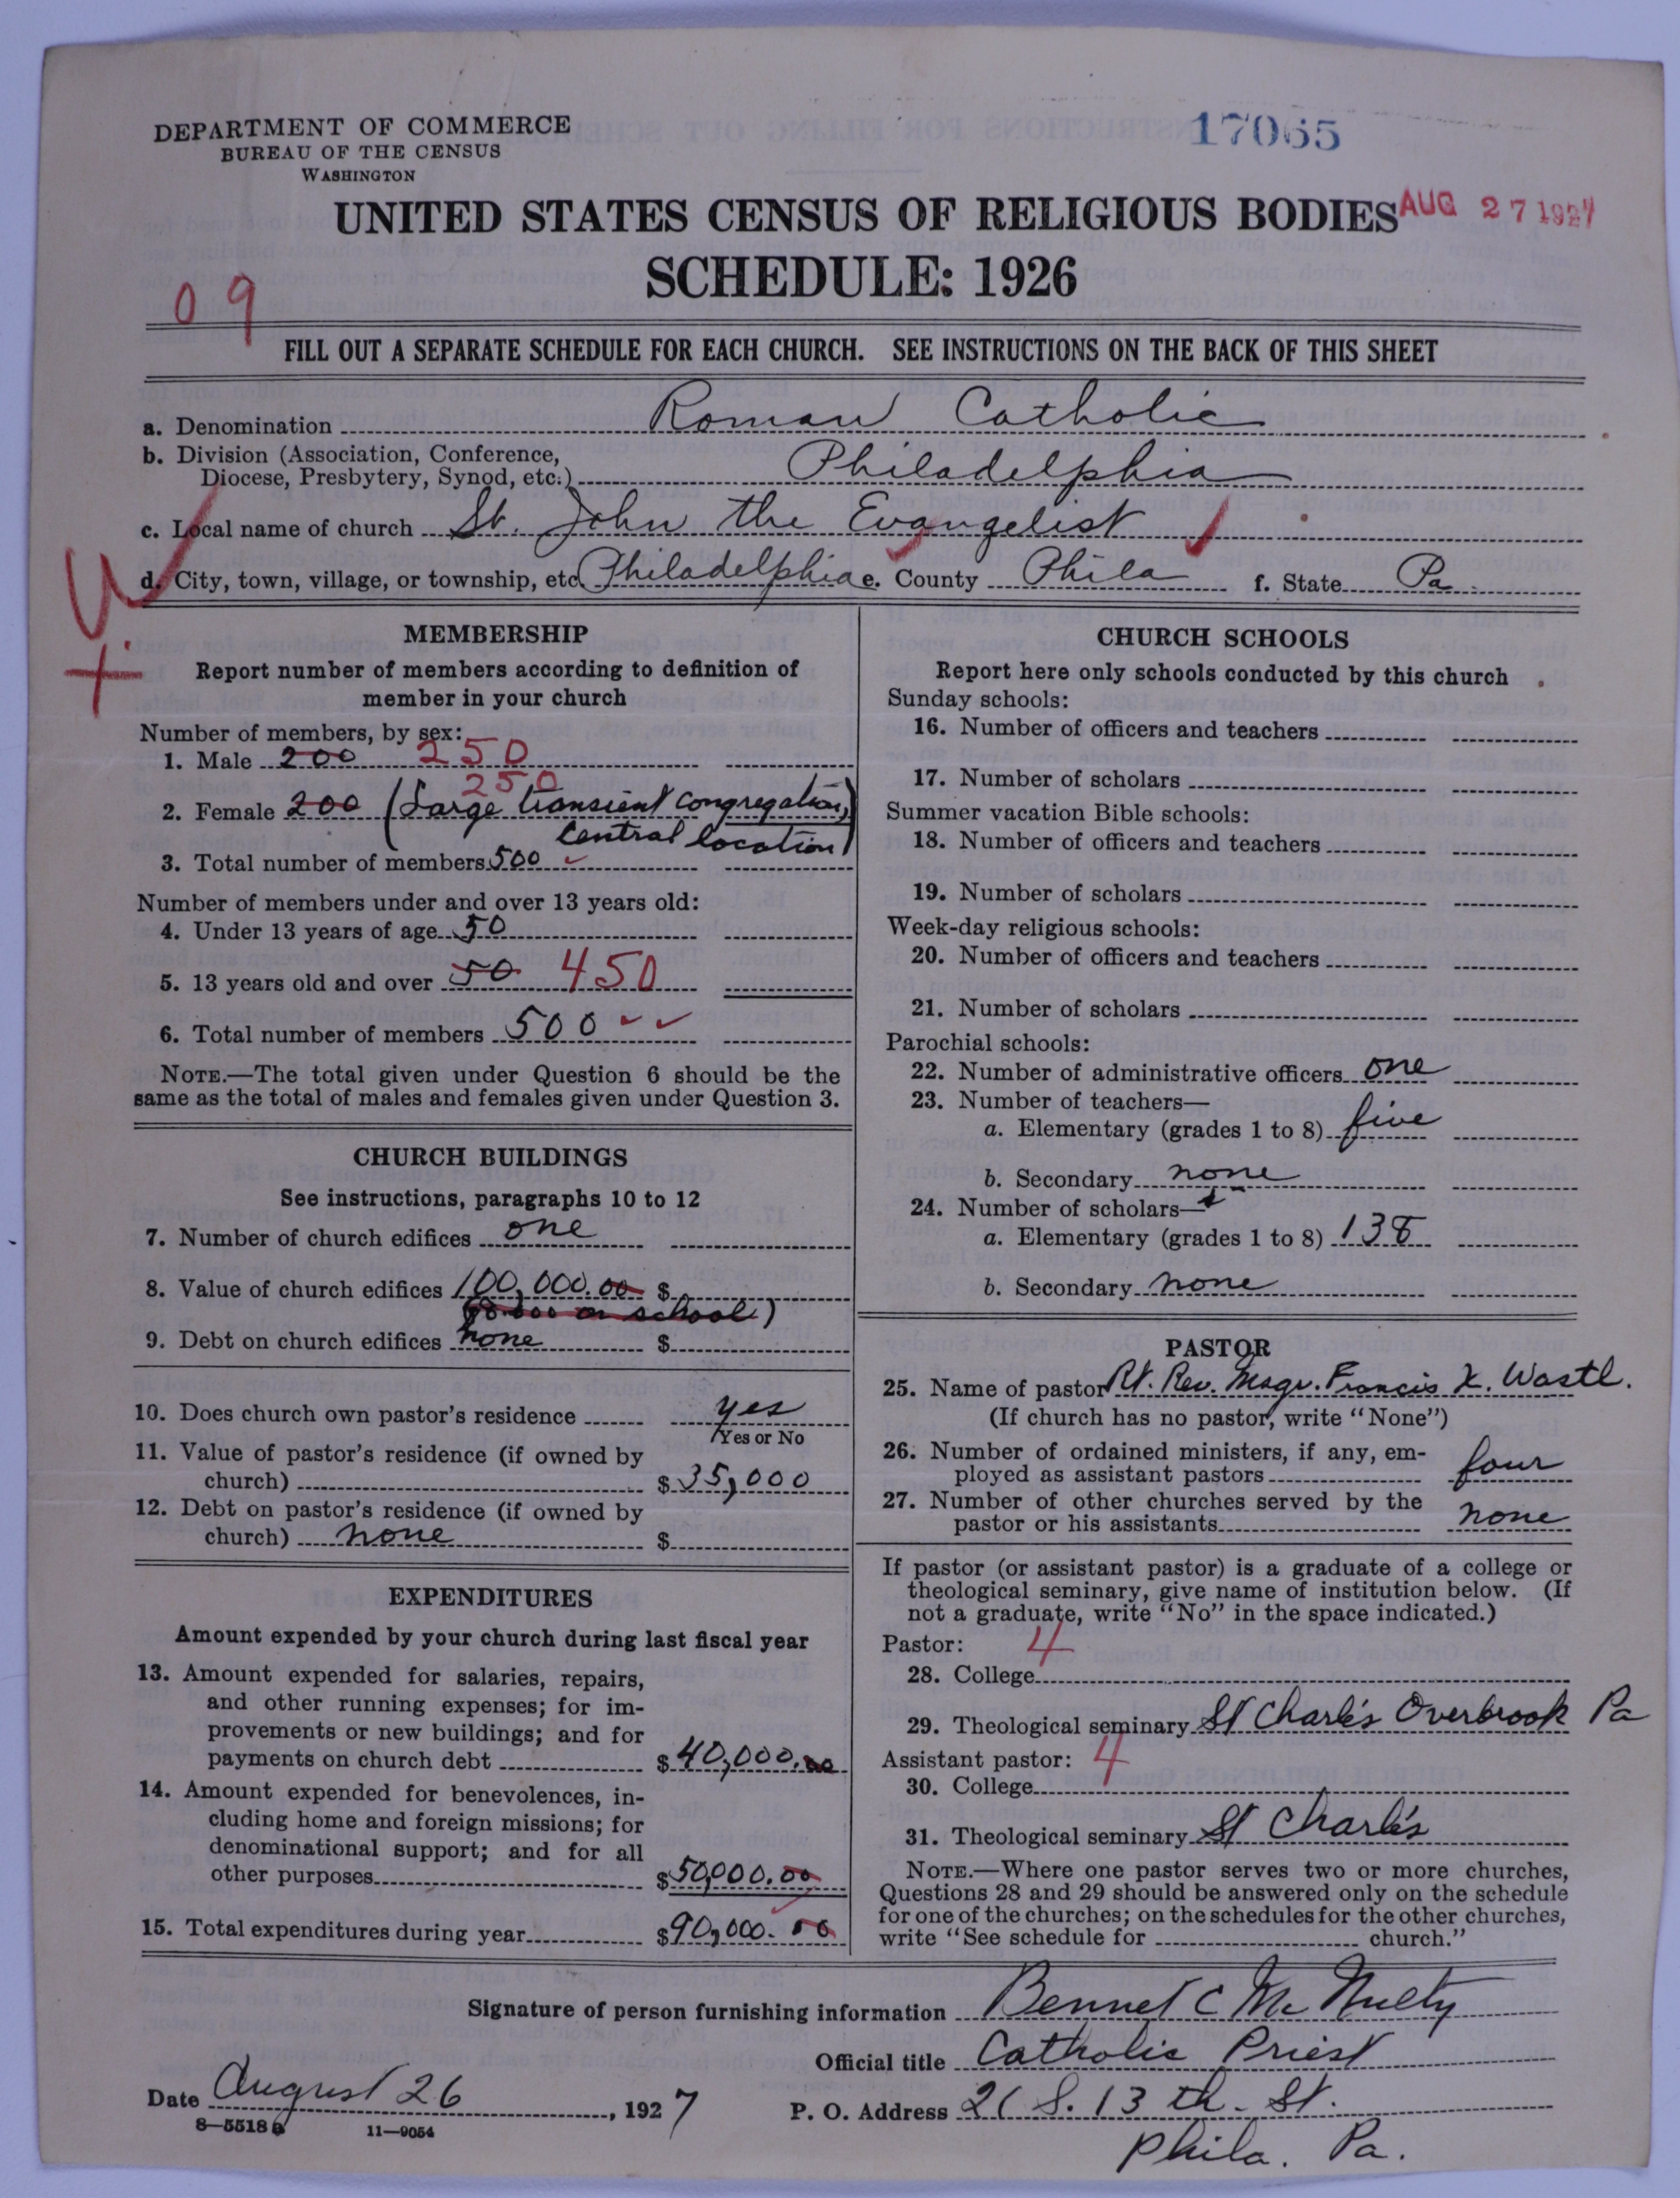 DEPARTMENT OF COMMERCE
BUREAU OF THE CENSUS
WASHINGTON
17065
UNITED STATES CENSUS OF RELIGIOUS BODIES
AUG 27 1927
SCHEDULE: 1926
09
FILL OUT A SEPARATE SCHEDULE FOR EACH CHURCH. SEE INSTRUCTIONS ON THE BACK OF THIS SHEET
a. Denomination Roman Catholic
b. Division (Association, Conference,
Diocese, Presbytery, Synod, etc.) Philadelphia
c. Local name of church St. John the Evangelist
d. City, town, village, or township, etc. Philadelphia e. County Phila f. State Pa.
MEMBERSHIP
Report number of members according to definition of
member in your church
Number of members, by sex:
1. Male 200 250
250
2. Female 200 (Large transient congregation,
central location)
3. Total number of members 500
Number of members under and over 13 years old:
4. Under 13 years of age 50
5. 13 years old and over 50 450
6. Total number of members 500
NOTE.—The total given under Question 6 should be the
same as the total of males and females given under Question 3.
CHURCH BUILDINGS
See instructions, paragraphs 10 to 12
7. Number of church edifices one
8. Value of church edifices 100,000.00 $
on school)
9. Debt on church edifices none $
10. Does church own pastor's residence yes
Yes or No
11. Value of pastor's residence (if owned by
church) $ 35,000
12. Debt on pastor's residence (if owned by
church) none $
EXPENDITURES
Amount expended by your church during last fiscal year
13. Amount expended for salaries, repairs,
and other running expenses; for im-
provements or new buildings; and for
payments on church debt $ 40,000.00
14. Amount expended for benevolences, in-
cluding home and foreign missions; for
denominational support; and for all
other purposes $ 50,000.00
15. Total expenditures during year $ 90,000.00
CHURCH SCHOOLS
Report here only schools conducted by this church
Sunday schools:
16. Number of officers and teachers
17. Number of scholars
Summer vacation Bible schools:
18. Number of officers and teachers
19. Number of scholars
Week-day religious schools:
20. Number of officers and teachers
21. Number of scholars
Parochial schools:
22. Number of administrative officers one
23. Number of teachers—
a. Elementary (grades 1 to 8) five
b. Secondary none
24. Number of scholars—
a. Elementary (grades 1 to 8) 138
b. Secondary none
PASTOR
25. Name of pastor Rt. Rev. Msgr. Francis X. Wastl.
(If church has no pastor, write "None")
26. Number of ordained ministers, if any, em-
ployed as assistant pastors four
27. Number of other churches served by the
pastor or his assistants none
If pastor (or assistant pastor) is a graduate of a college or
theological seminary, give name of institution below. (If
not a graduate, write "No" in the space indicated.)
Pastor: 4
28. College
29. Theological seminary St Charles Overbrook Pa
Assistant pastor: 4
30. College
31. Theological seminary St Charles
NOTE.—Where one pastor serves two or more churches,
Questions 28 and 29 should be answered only on the schedule
for one of the churches; on the schedules for the other churches,
write "See schedule for church."
Signature of person furnishing information Bennet C McNulty
Official title Catholic Priest
Date August 26, 1927
P. O. Address 21 S. 13th. St.
Phila. Pa.
8—5518
11—9054